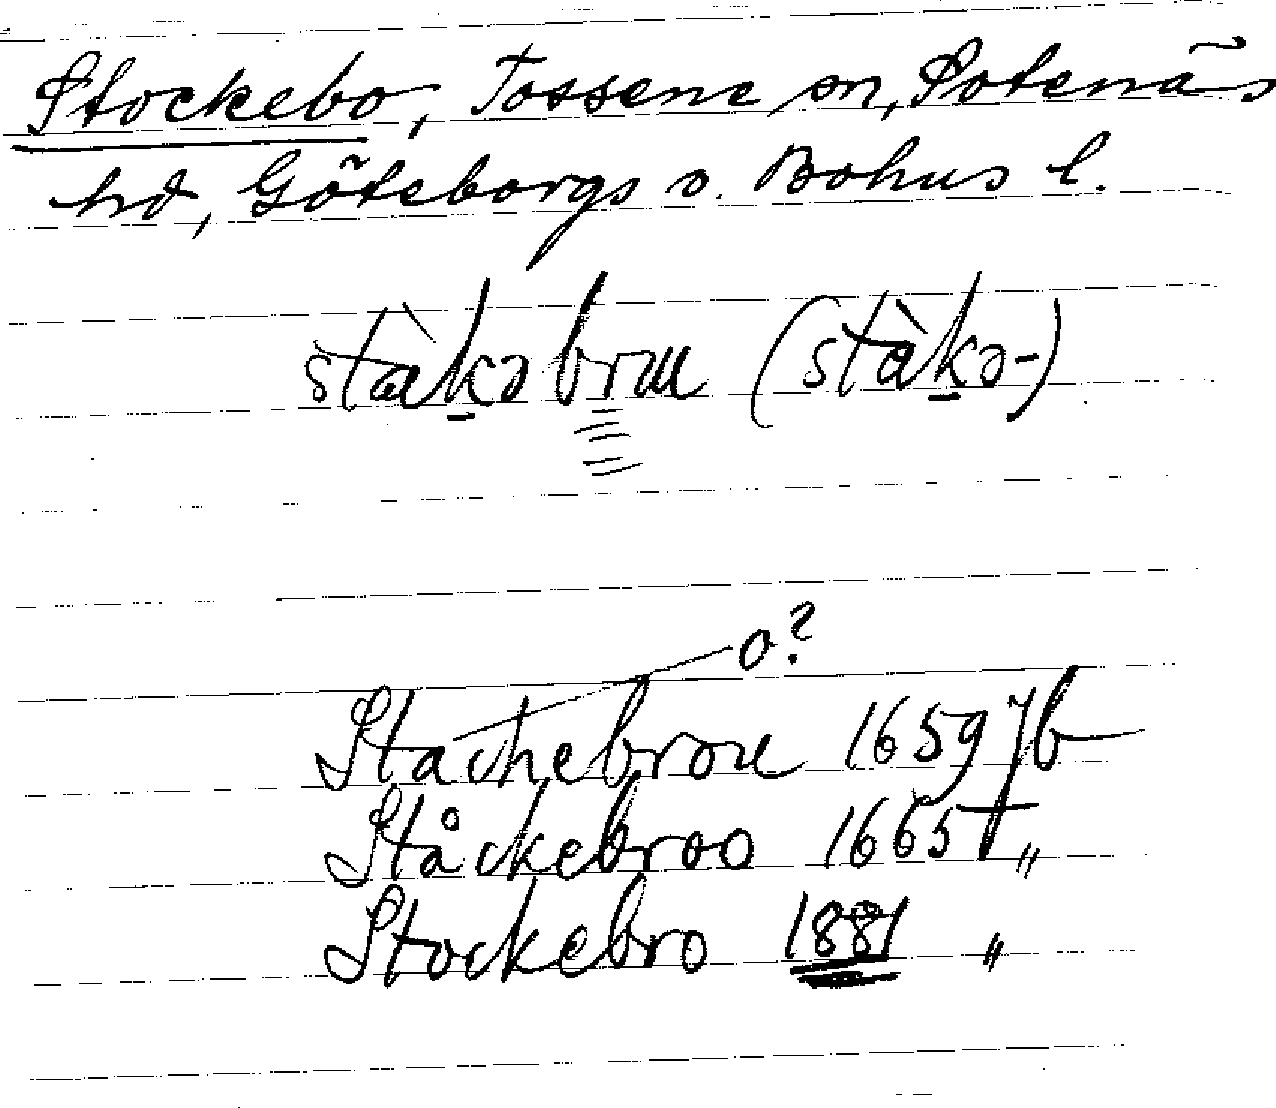 Stockebo, Tossene sn, Sotenäs
hd, Göteborgs o. Bohus l.
stàkəbrɯ (stàkə-)
o?
Stachebrou 1659 Jb
Ståckebroo 1665 "
Stockebro 1881 "